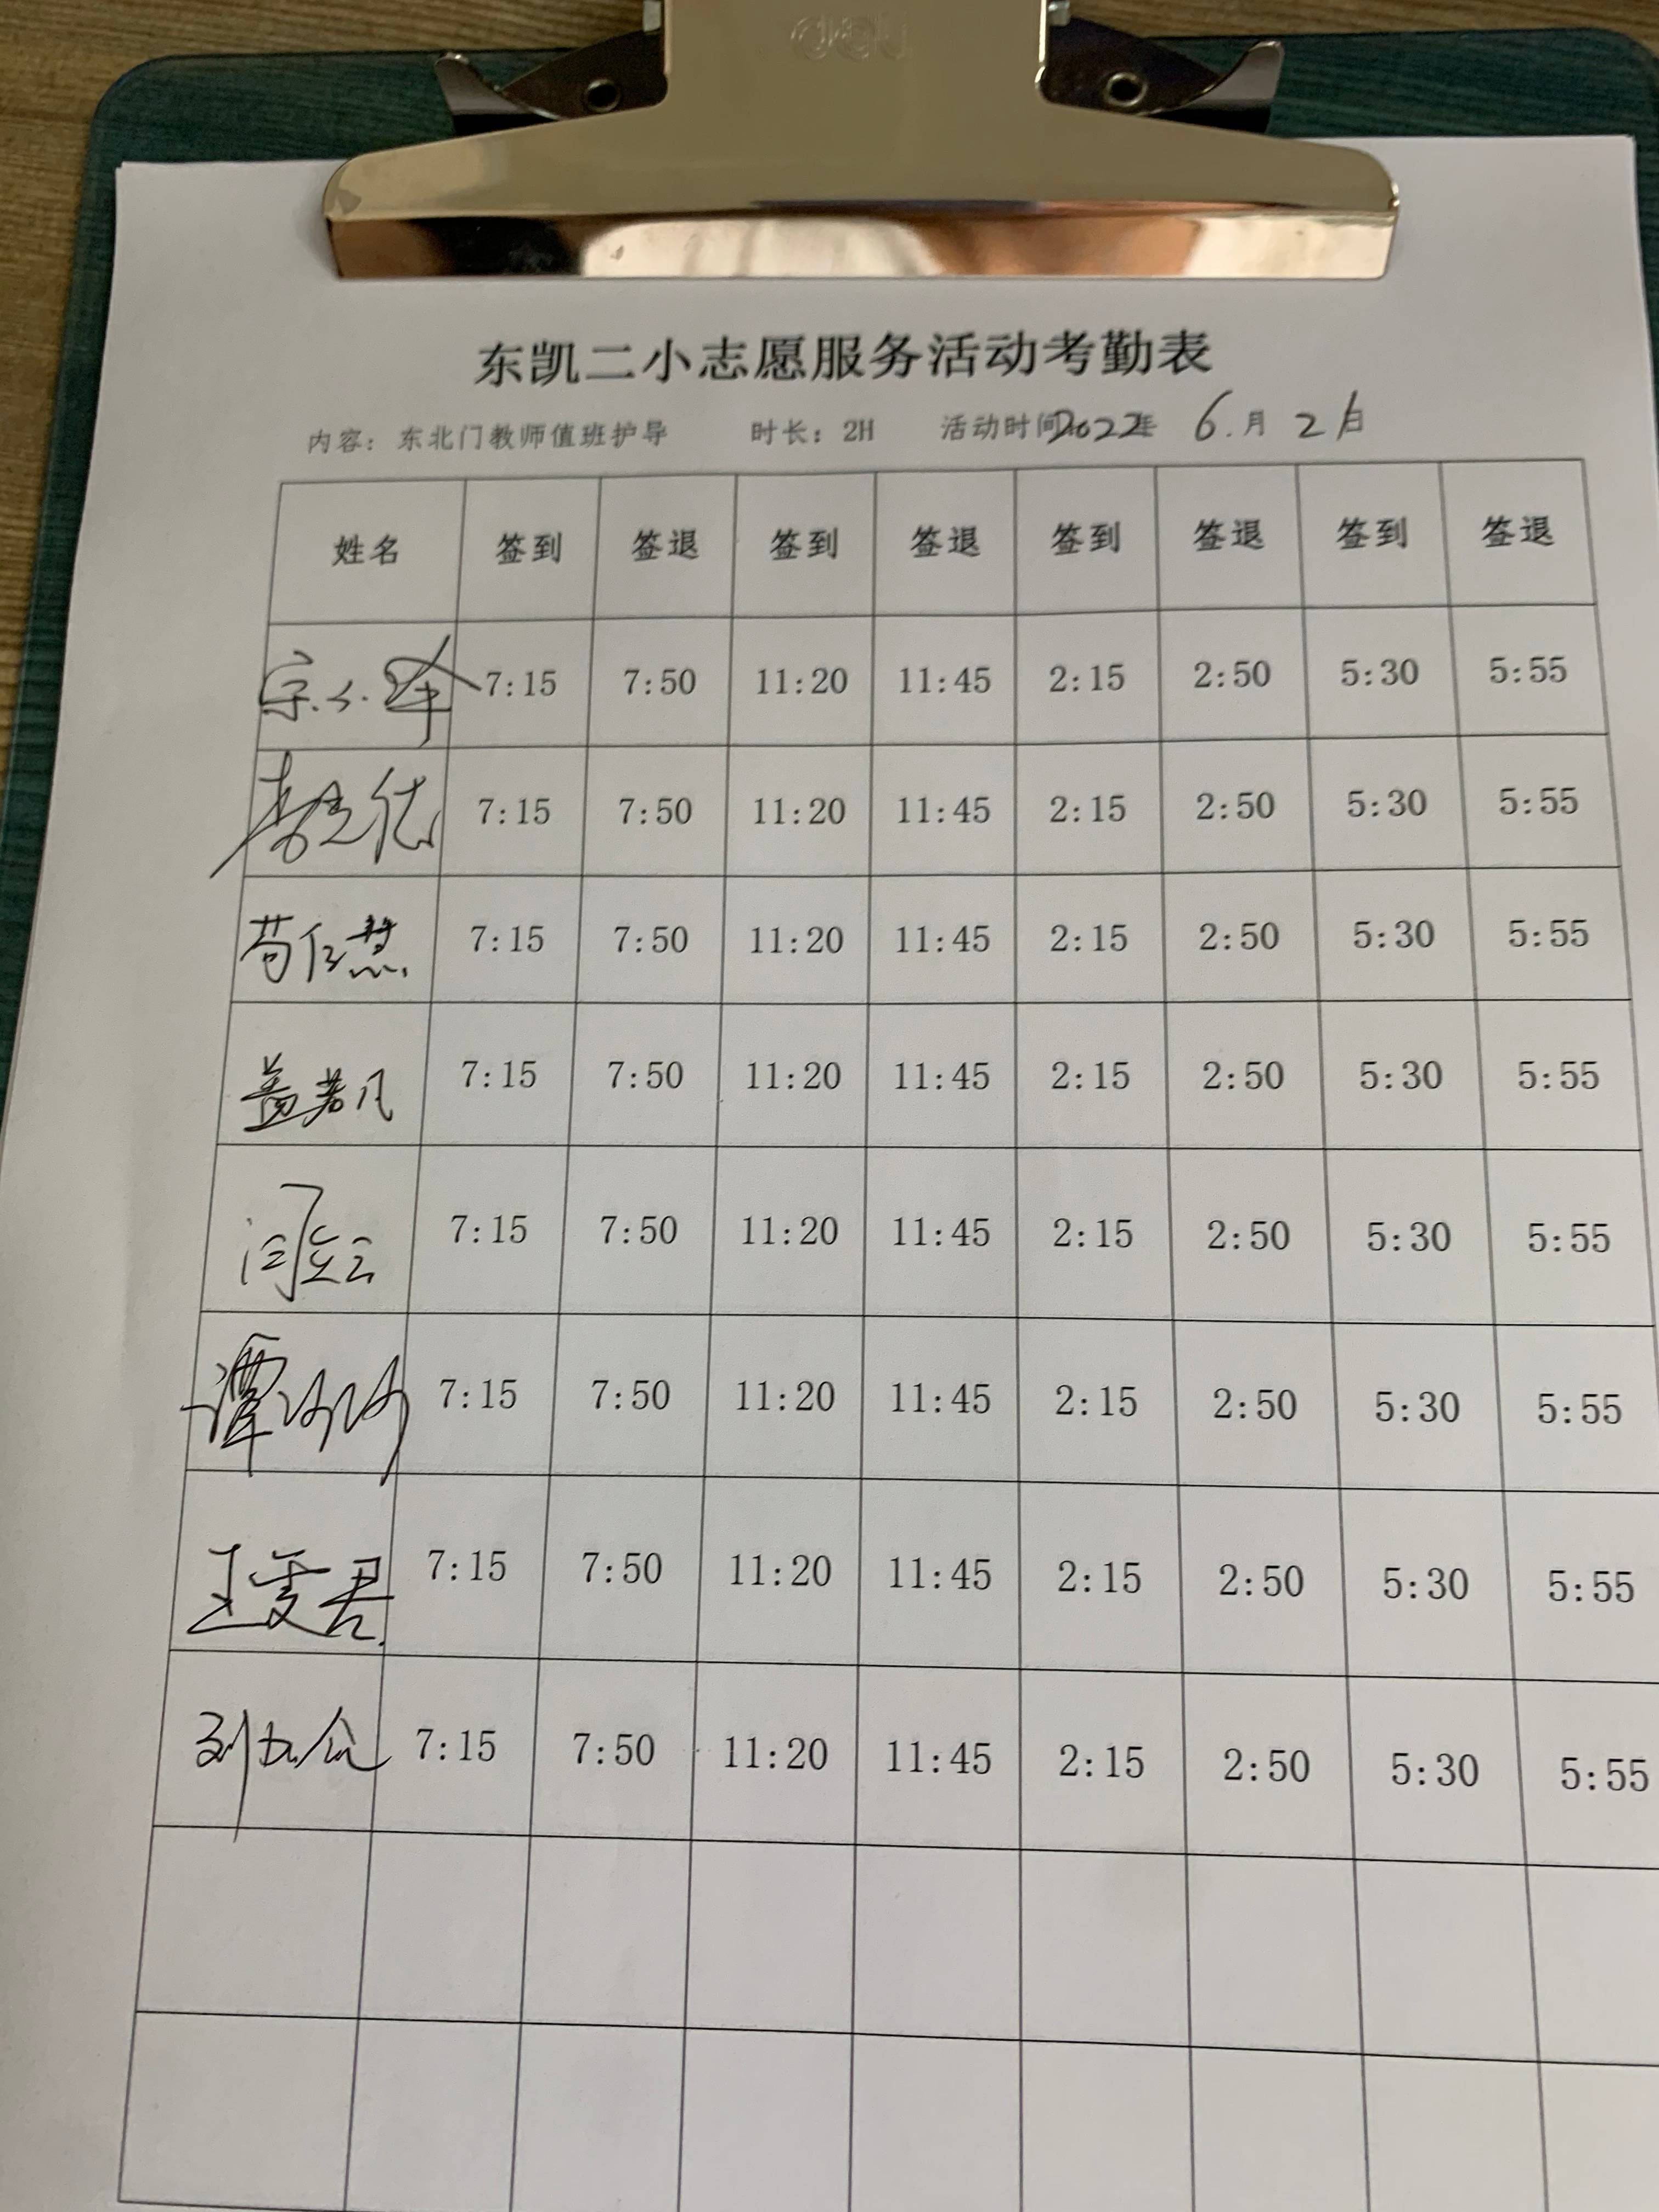 deli
东凯二小志愿服务活动考勤表
内容：东北门教师值班护导 时长：2H 活动时间：2022年 6月 21日
姓名 签到 签退 签到 签退 签到 签退 签到 签退
宗 7:15 7:50 11:20 11:45 2:15 2:50 5:30 5:55
7:15 7:50 11:20 11:45 2:15 2:50 5:30 5:55
苟仁慧 7:15 7:50 11:20 11:45 2:15 2:50 5:30 5:55
盖若凡 7:15 7:50 11:20 11:45 2:15 2:50 5:30 5:55
闫 7:15 7:50 11:20 11:45 2:15 2:50 5:30 5:55
谭 7:15 7:50 11:20 11:45 2:15 2:50 5:30 5:55
王雯君 7:15 7:50 11:20 11:45 2:15 2:50 5:30 5:55
刘 7:15 7:50 11:20 11:45 2:15 2:50 5:30 5:55